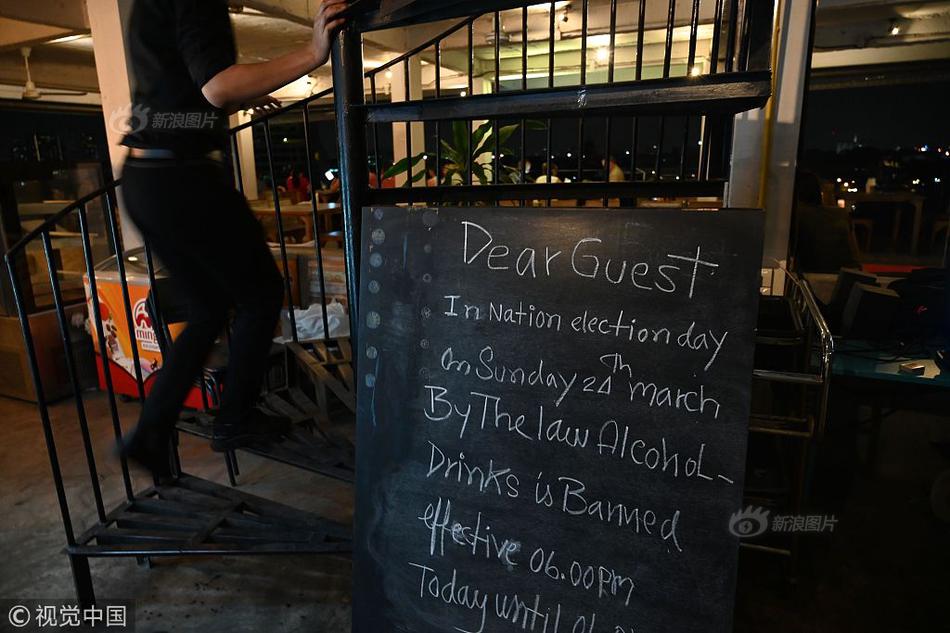 新浪图片
Dear Guest
In Nation election day
on Sunday 24th march
By The law Alcohol-
Drinks is Banned
effective 06.00pm
Today until
新浪图片
© 视觉中国